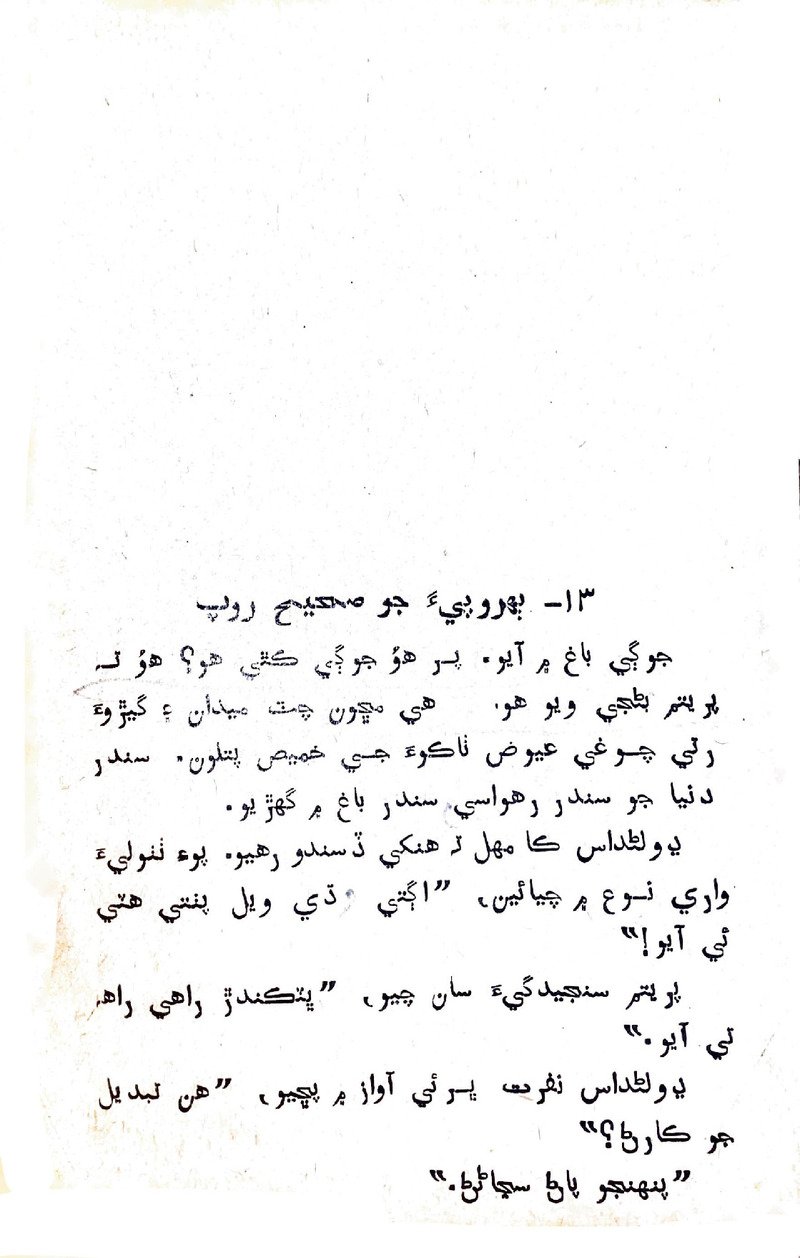 ١٣- ٻهروپيءَ جو صحيح روپ
جوڳي باغ ۾ آيو. پر هوُ جوڳي ڪٿي هو؟ هوُ تہ
پريتم بڻجي ويو هو. هي مڇون چٽ ميدان ۽ گيڙوءَ
رتي چوغي عيوض ناڪوءَ جسي خميص پتلون. سندر
دنيا جو سندر رهواسي سندر باغ ۾ گهڙيو.
ڊولڻداس ڪا مهل تہ هنکي ڏسندو رهيو. پوءِ ٺٺوليءَ
واري نوع ۾ چيائين، ”اڳتي وڌي ويل پنتي هٽي
ئي آيو!“
پريتم سنجيدگيءَ سان چيو، ”ڀٽڪندڙ راهي راهہ
تي آيو.“
ڊولڻداس نفرت ڀرئي آواز ۾ پڇيو، ”هن تبديل
جو ڪارڻ؟“
”پنهنجو پاڻ سڃاڻڻ.“